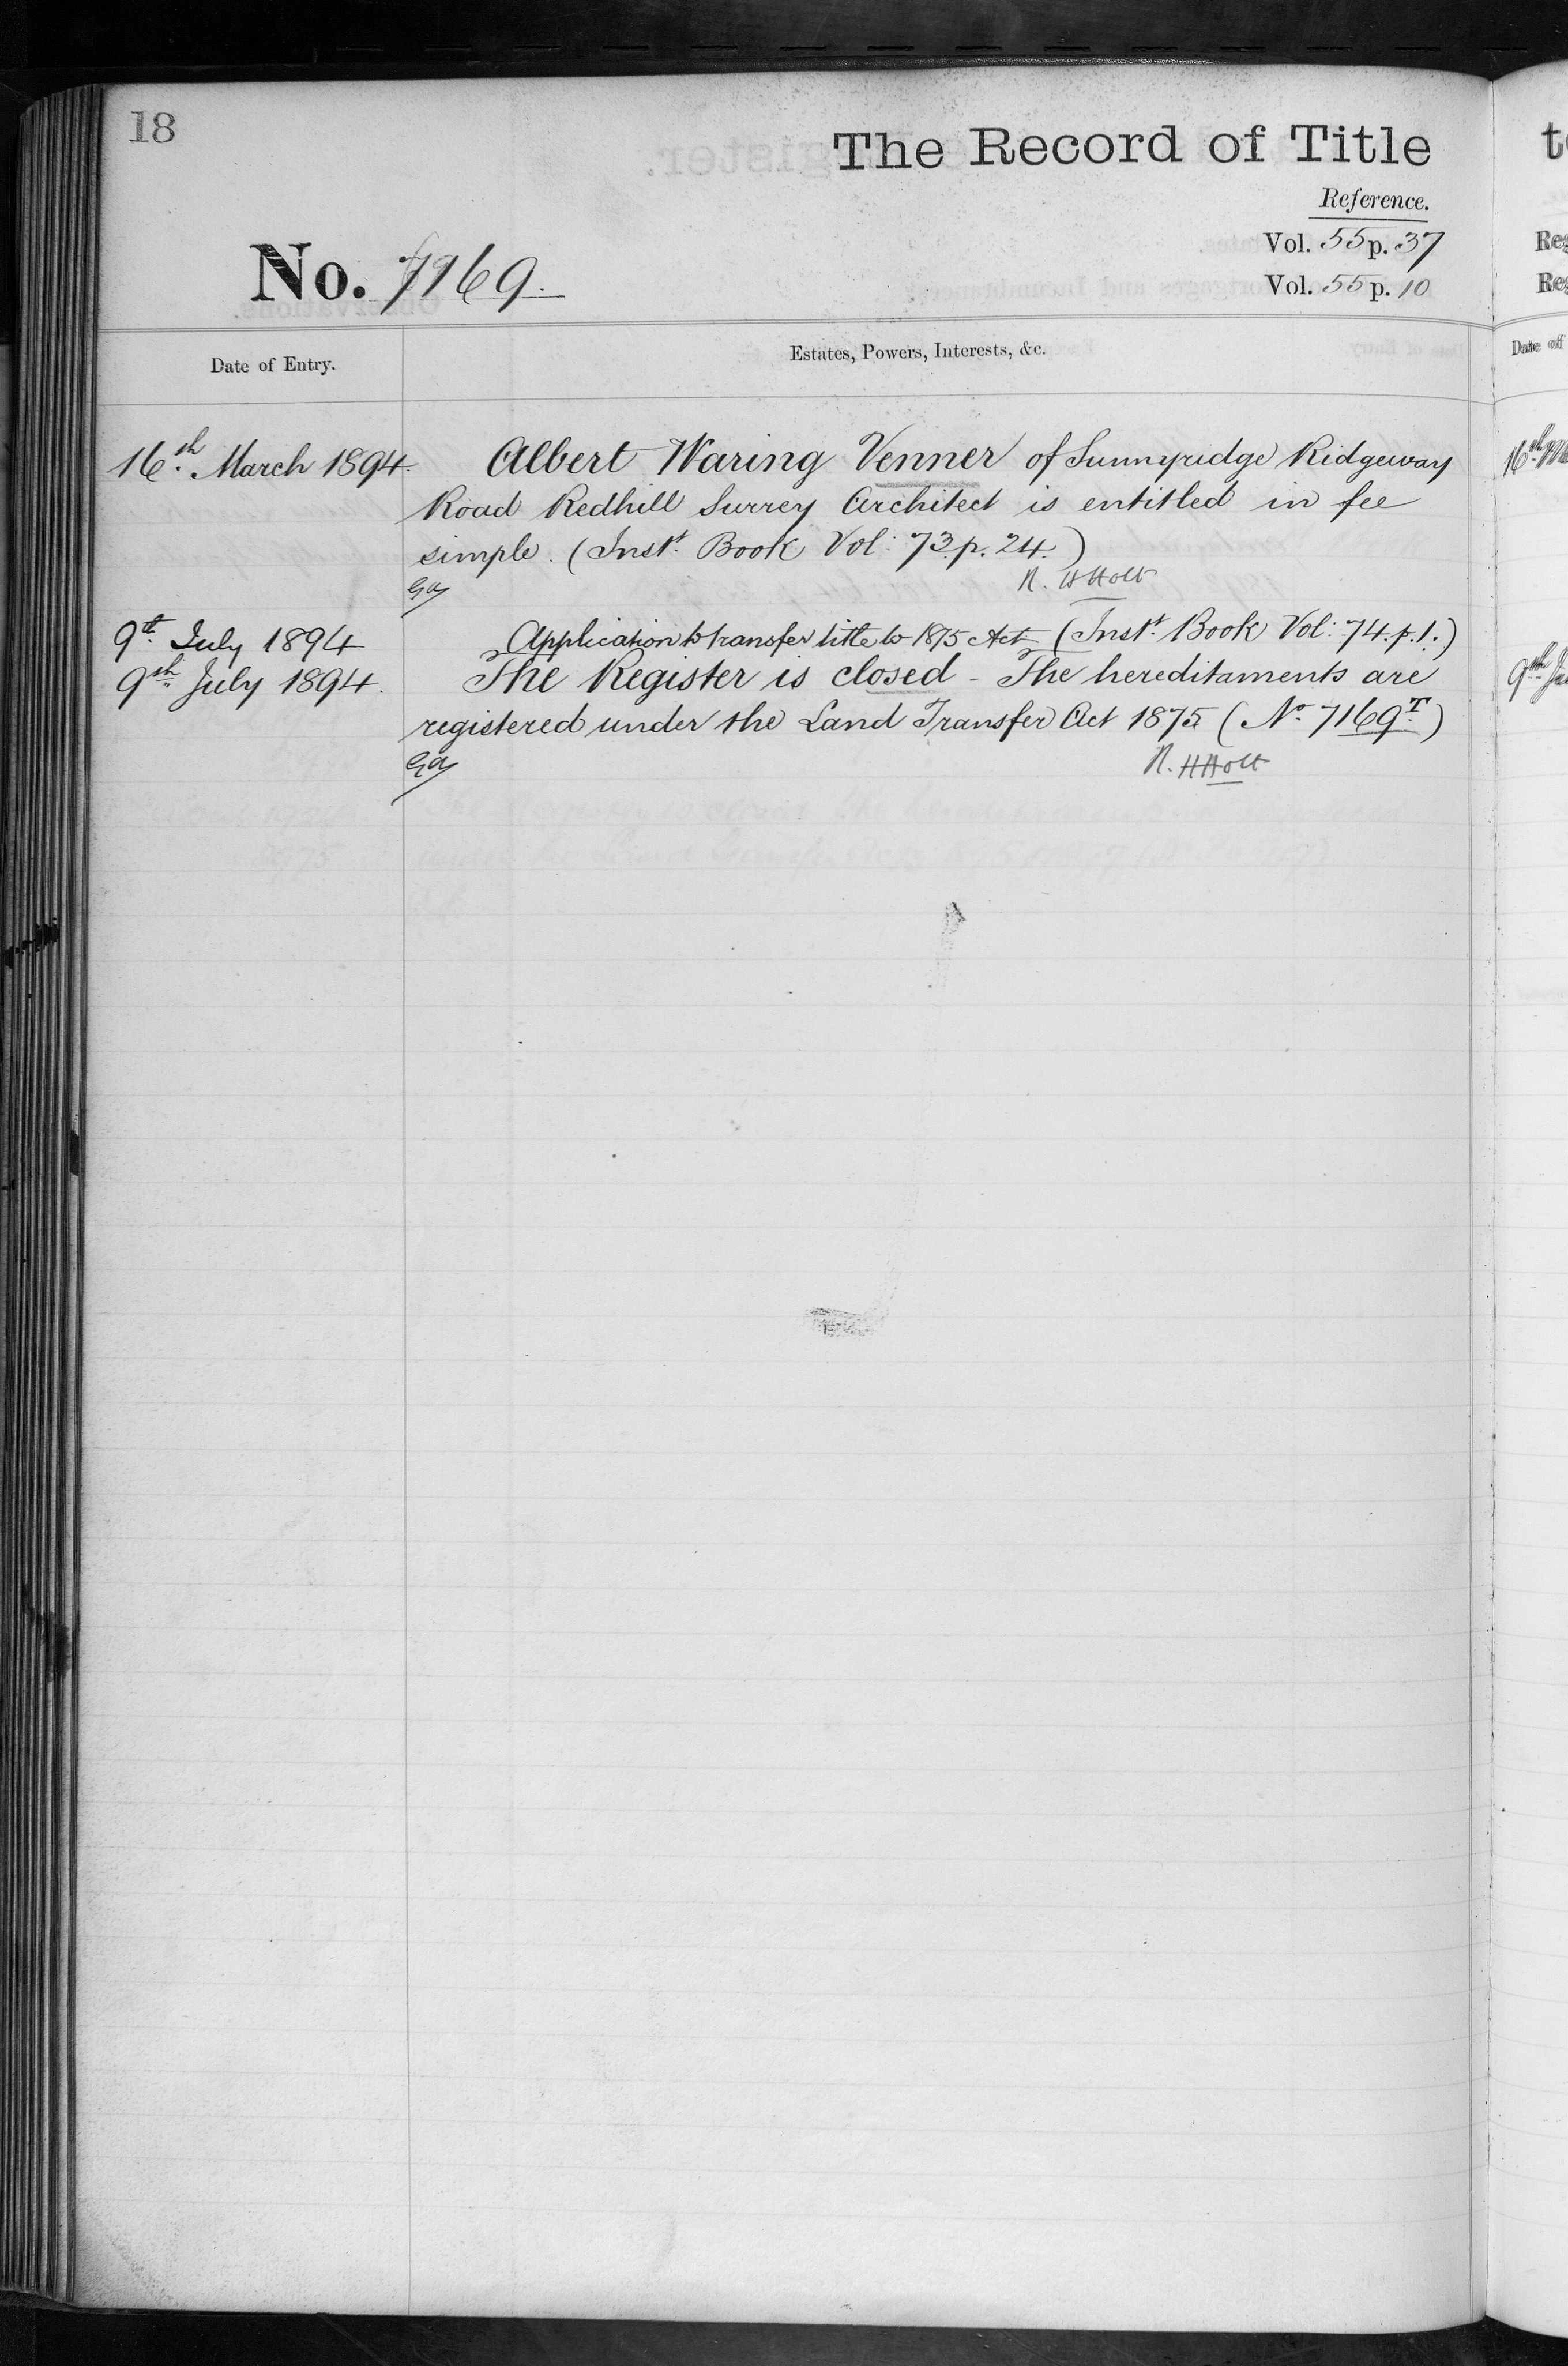 18
The Record of Title
Reference.
Vol. 55 p. 37
No. 7169.
Vol. 55 p. 10
Date of Entry.
Estates, Powers, Interests, &c.
16th. March 1894.
Albert Waring Venner of Sunnyridge Ridgeway
Road Redhill Surrey Architect is entitled in fee
simple. (Inst. Book Vol: 73. p. 24.)
R. H Holt
9th. July 1894
Application to transfer title to 1875 Act (Inst. Book Vol: 74. p. 1.)
9th. July 1894.
The Register is closed - The hereditaments are
registered under the Land Transfer Act 1875 (No. 7169T.)
R. H Holt
Date of
16th
9th